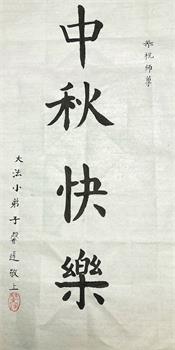 恭祝師尊
中秋快樂
大法小弟子馨蓮敬上